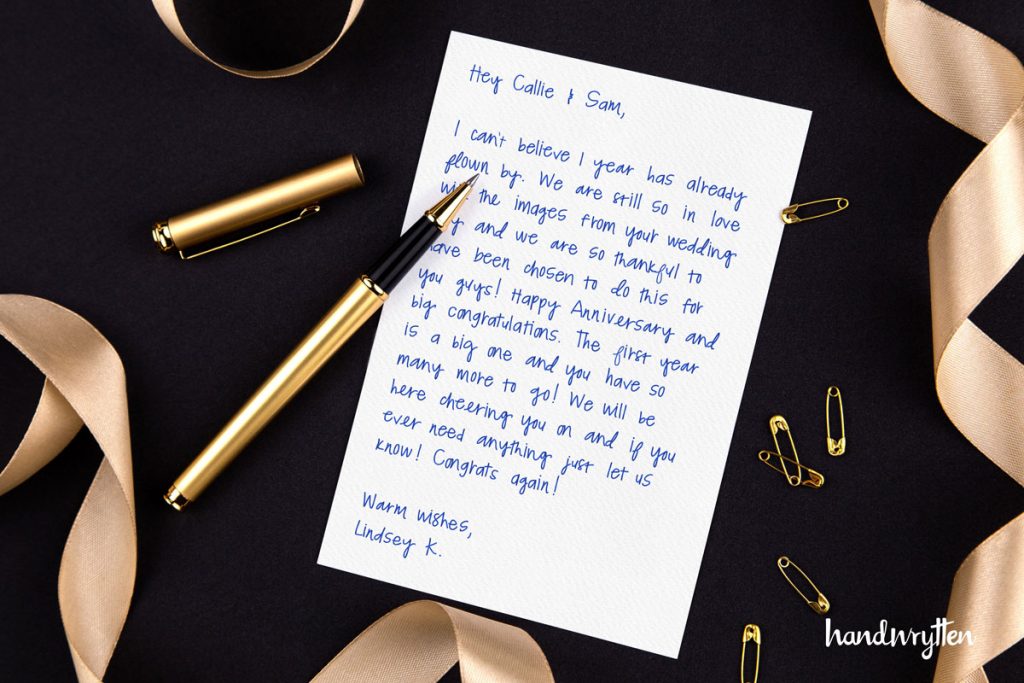 Hey Callie & Sam,
I can't believe 1 year has already
flown by. We are still so in love
the images from your wedding
and we are so thankful to
have been chosen to do this for
you guys! Happy Anniversary and
big congratulations. The first year
is a big one and you have so
many more to go! We will be
here cheering you on and if you
ever need anything just let us
know! Congrats again!
Warm wishes,
Lindsey K.
handwrytten